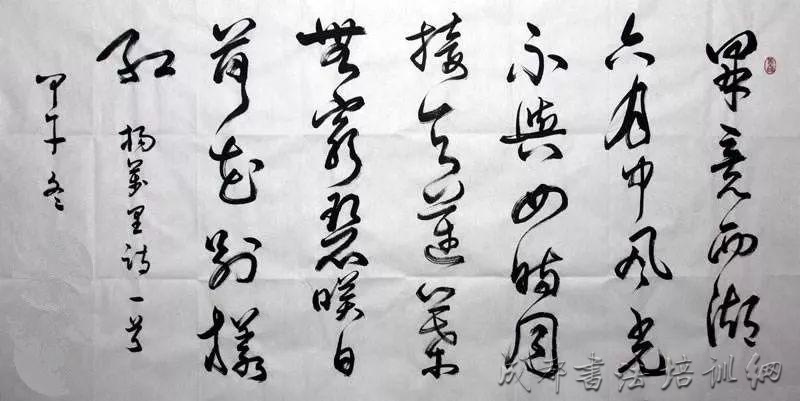 畢竟西湖
六月中風光
不與四時同
接天蓮葉
無窮碧映日
荷花別樣
紅
楊萬里詩一首
甲午冬
成都書法培訓網